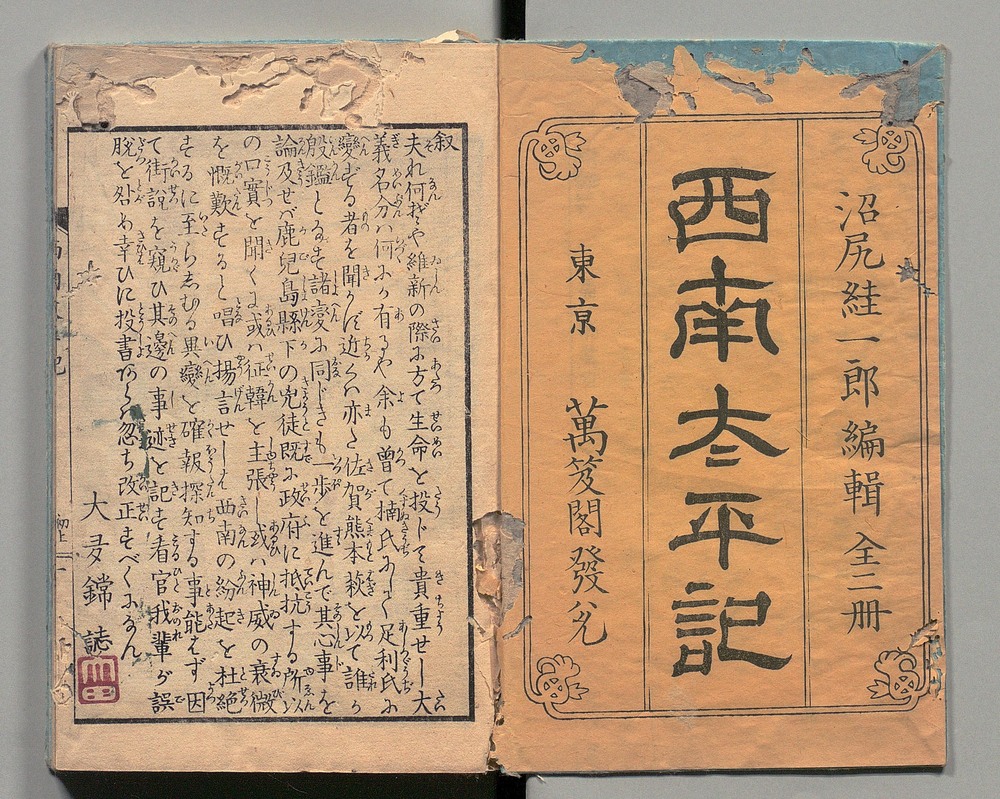 沼尻絓一郎編輯 全二册
西南太平記
東京 萬笈閣發兌
叙
夫れ何ぞや維新の際に方て生命を投じて貴重せし大
義名分ハ何にか有るや余も曾て楠氏にして足利氏に
變ずる者を聞かず近くハ亦た佐賀熊本萩を以て誰か
殷鑑とるす諸變に同じきも一歩を進んで其心事を
論及せバ鹿兒島縣下の兇徒既に政府に抵抗する所以
の口實を聞くに或ハ征韓を主張し或ハ神威の衰微
を慨歎するると唱ひ揚言せしも西南の紛起を杜絶
するに至らしむる異變を確報探知する事能はず因
て街説を窺ひ其邊の事迹を記す者官我輩が誤
脱を咎め幸ひに投書あらハ忽ち改正すべくになん
大 鐺 誌